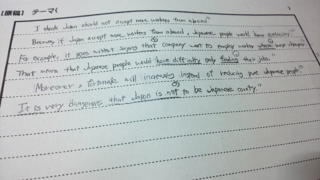 【原稿】 テーマ(
I think Japan should not accept more workers from abroad."
Because, if Japan accept more workers from abroad, Japanese people would have
For example, it goes without saying that company want to employ worker whose wage cheaper
That means that Japanese people would have difficulty only finding their jobs."
Moreover, foreigner will increase instead of reducing pure Japanese people."
It is very dangerous that Japan is not to be Japanese country."